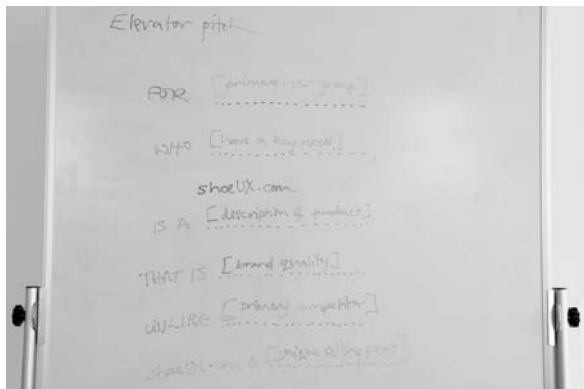 Elevator pitch
FOR [primary user group]
WHO [have a key need]
shoeUX.com
IS A [description of product]
THAT IS [brand quality]
UNLIKE [primary competitor]
shoeUX.com [unique selling point]